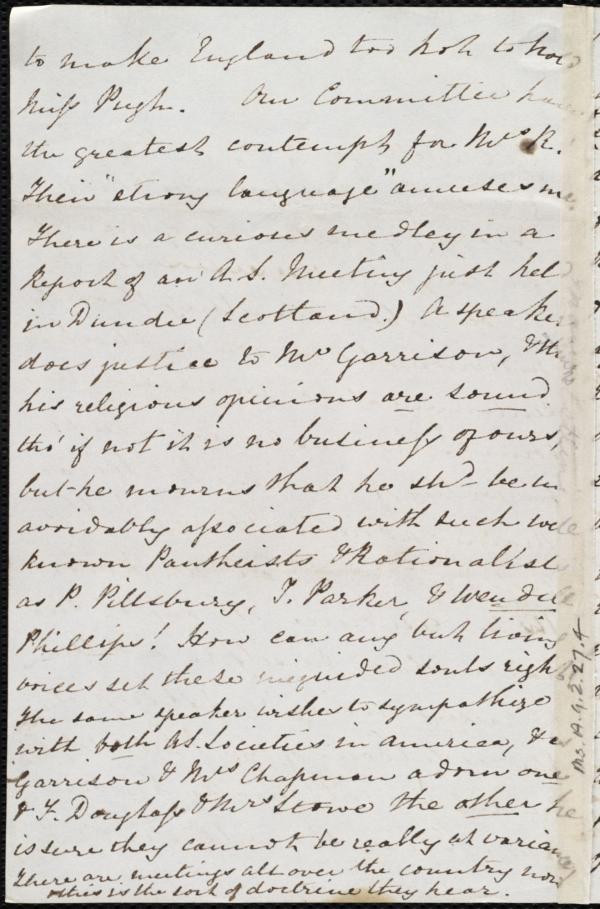 to make England too hot to hold
Miss Pugh. Our Committee have
the greatest contempt for Mrs R.
Their "strong language" amuses me.
There is a curious medley in a
Report of an A.S. Meeting just held
in Dundee (Scotland.) A speaker
does justice to Mr Garrison, & th
his religious opinions are sound
tho' if not it is no business of ours,
but he mourns that he shd be un
avoidably associated with such well
known Pantheists & Rationalists
as P. Pillsbury, T. Parker, & Wendell
Phillips! How can any but living
voices set these misguided souls right
The same speaker wishes to sympathize
with both A.S. Societies in America, & as
Garrison & Mrs Chapman adorn one
& F. Douglass & Mrs Stowe the other he
is sure they cannot be really at variance
There are meetings all over the country now
& this is the sort of doctrine they hear.
Ms. A. 9. 2. 27. 4